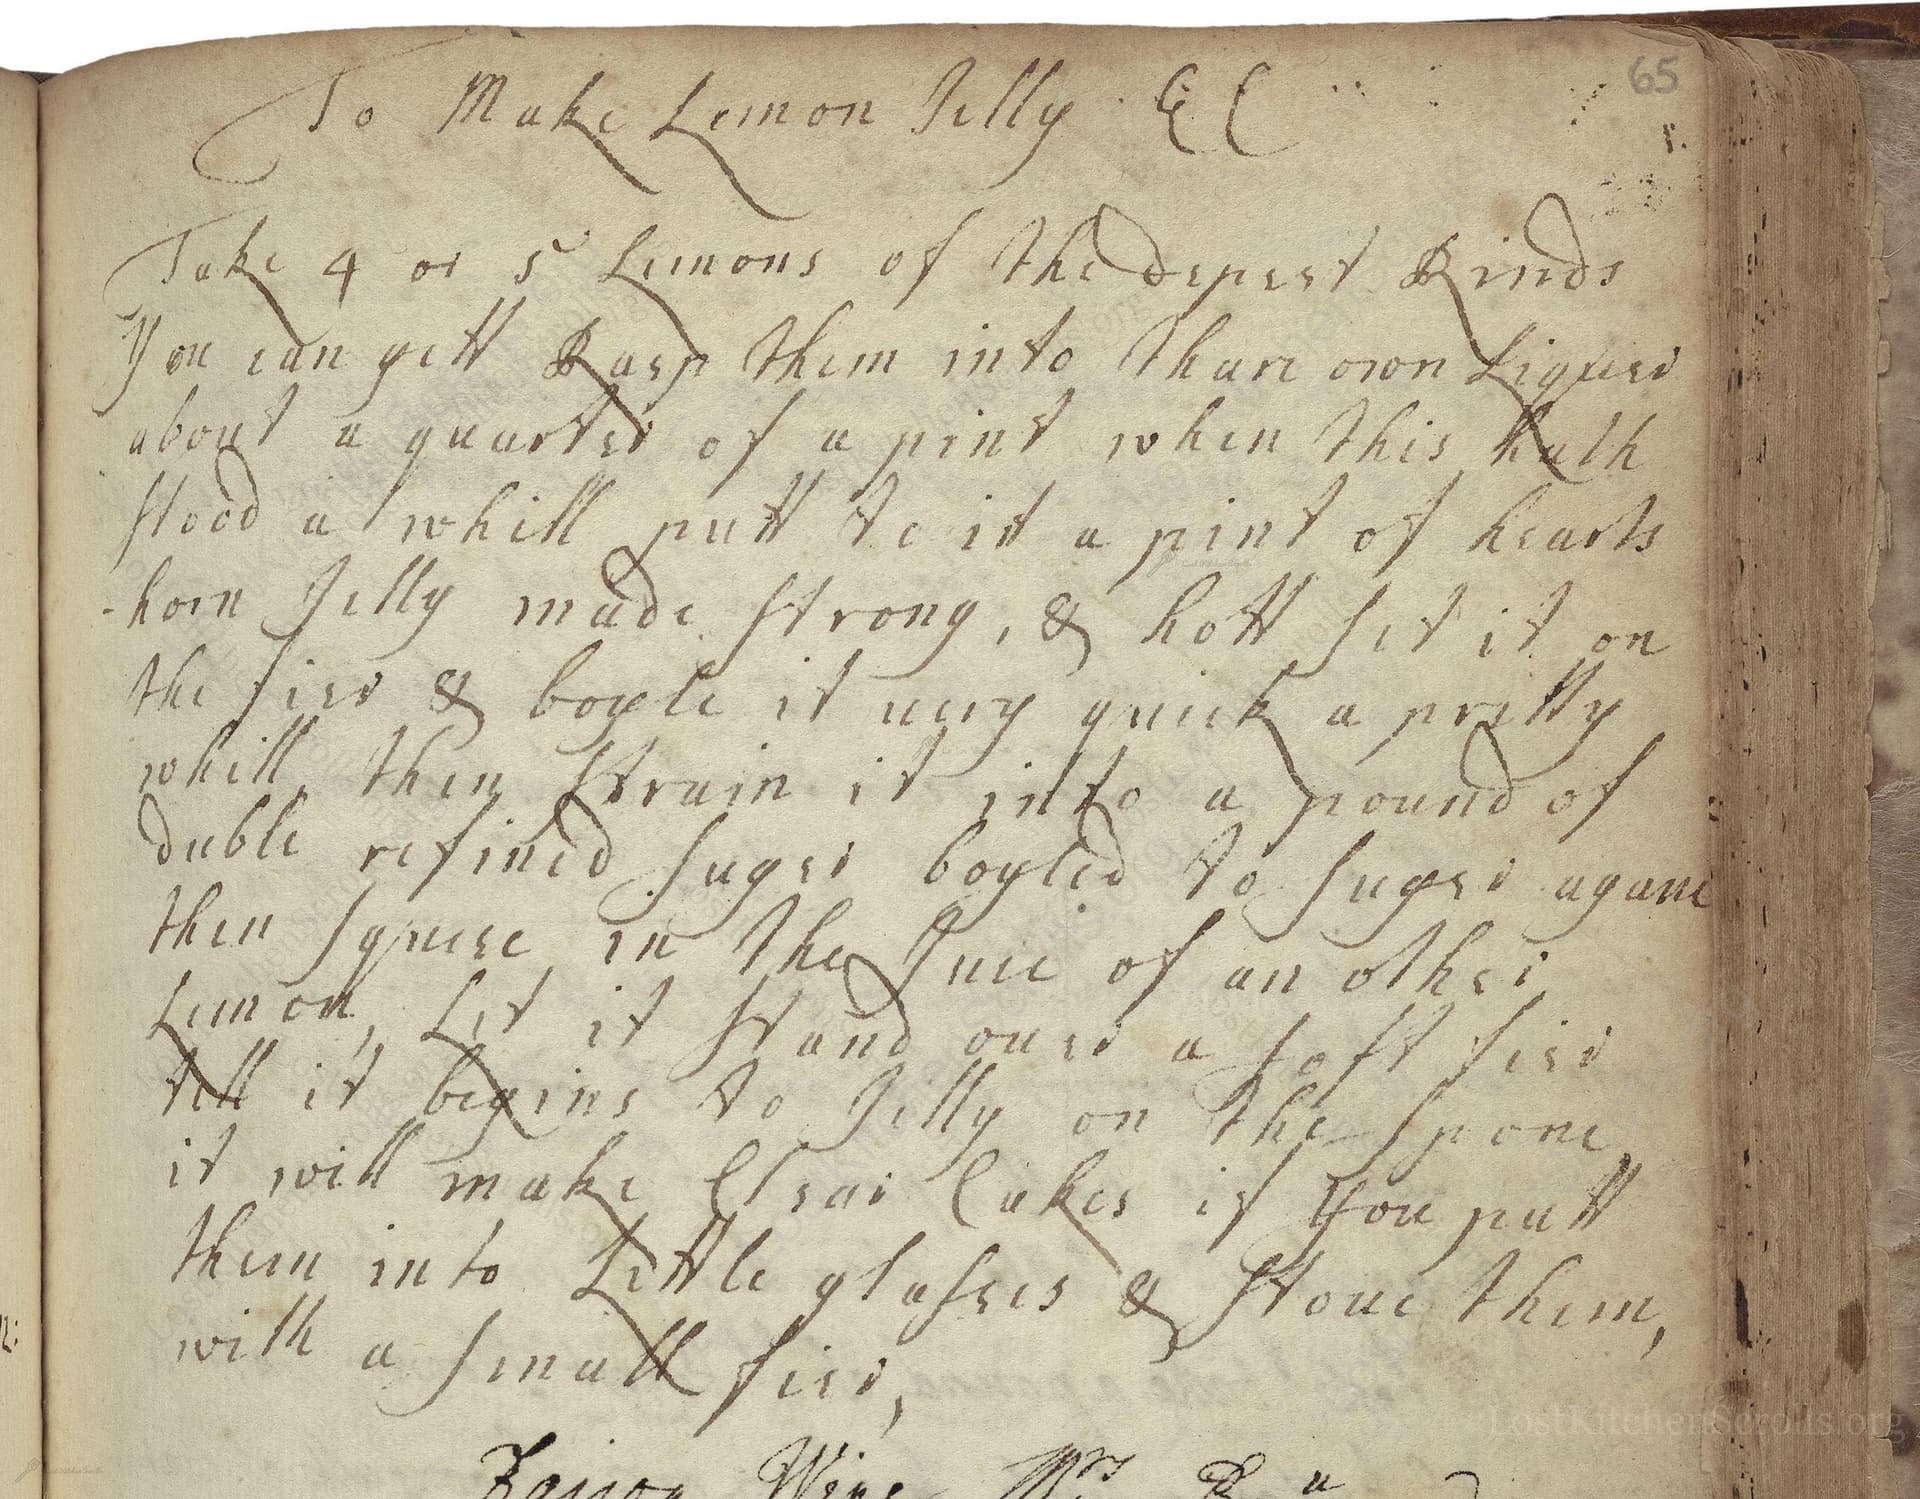 65
To Make Lemon Jelly E C
Take 4 or 5 Lemons of the depest Rinds
You can gett Rasp them into thare own Liquer
about a quarter of a pint when this hath
stood a whill putt to it a pint of hearts
-horn Jelly made strong, & hott set it on
the fier & boyle it uery quick a pretty
whill, then strain it into a pound of
duble refined suger boyled to suger agane
then squese in the Juce of an other
Lemon, Let it stand ouer a soft fier
till it begins to Jelly on the spone
it will make Clear Cakes if You putt
them into Little glasses & stoue them,
with a small fier,
Wine Mrs
LostKitchenScrolls.org